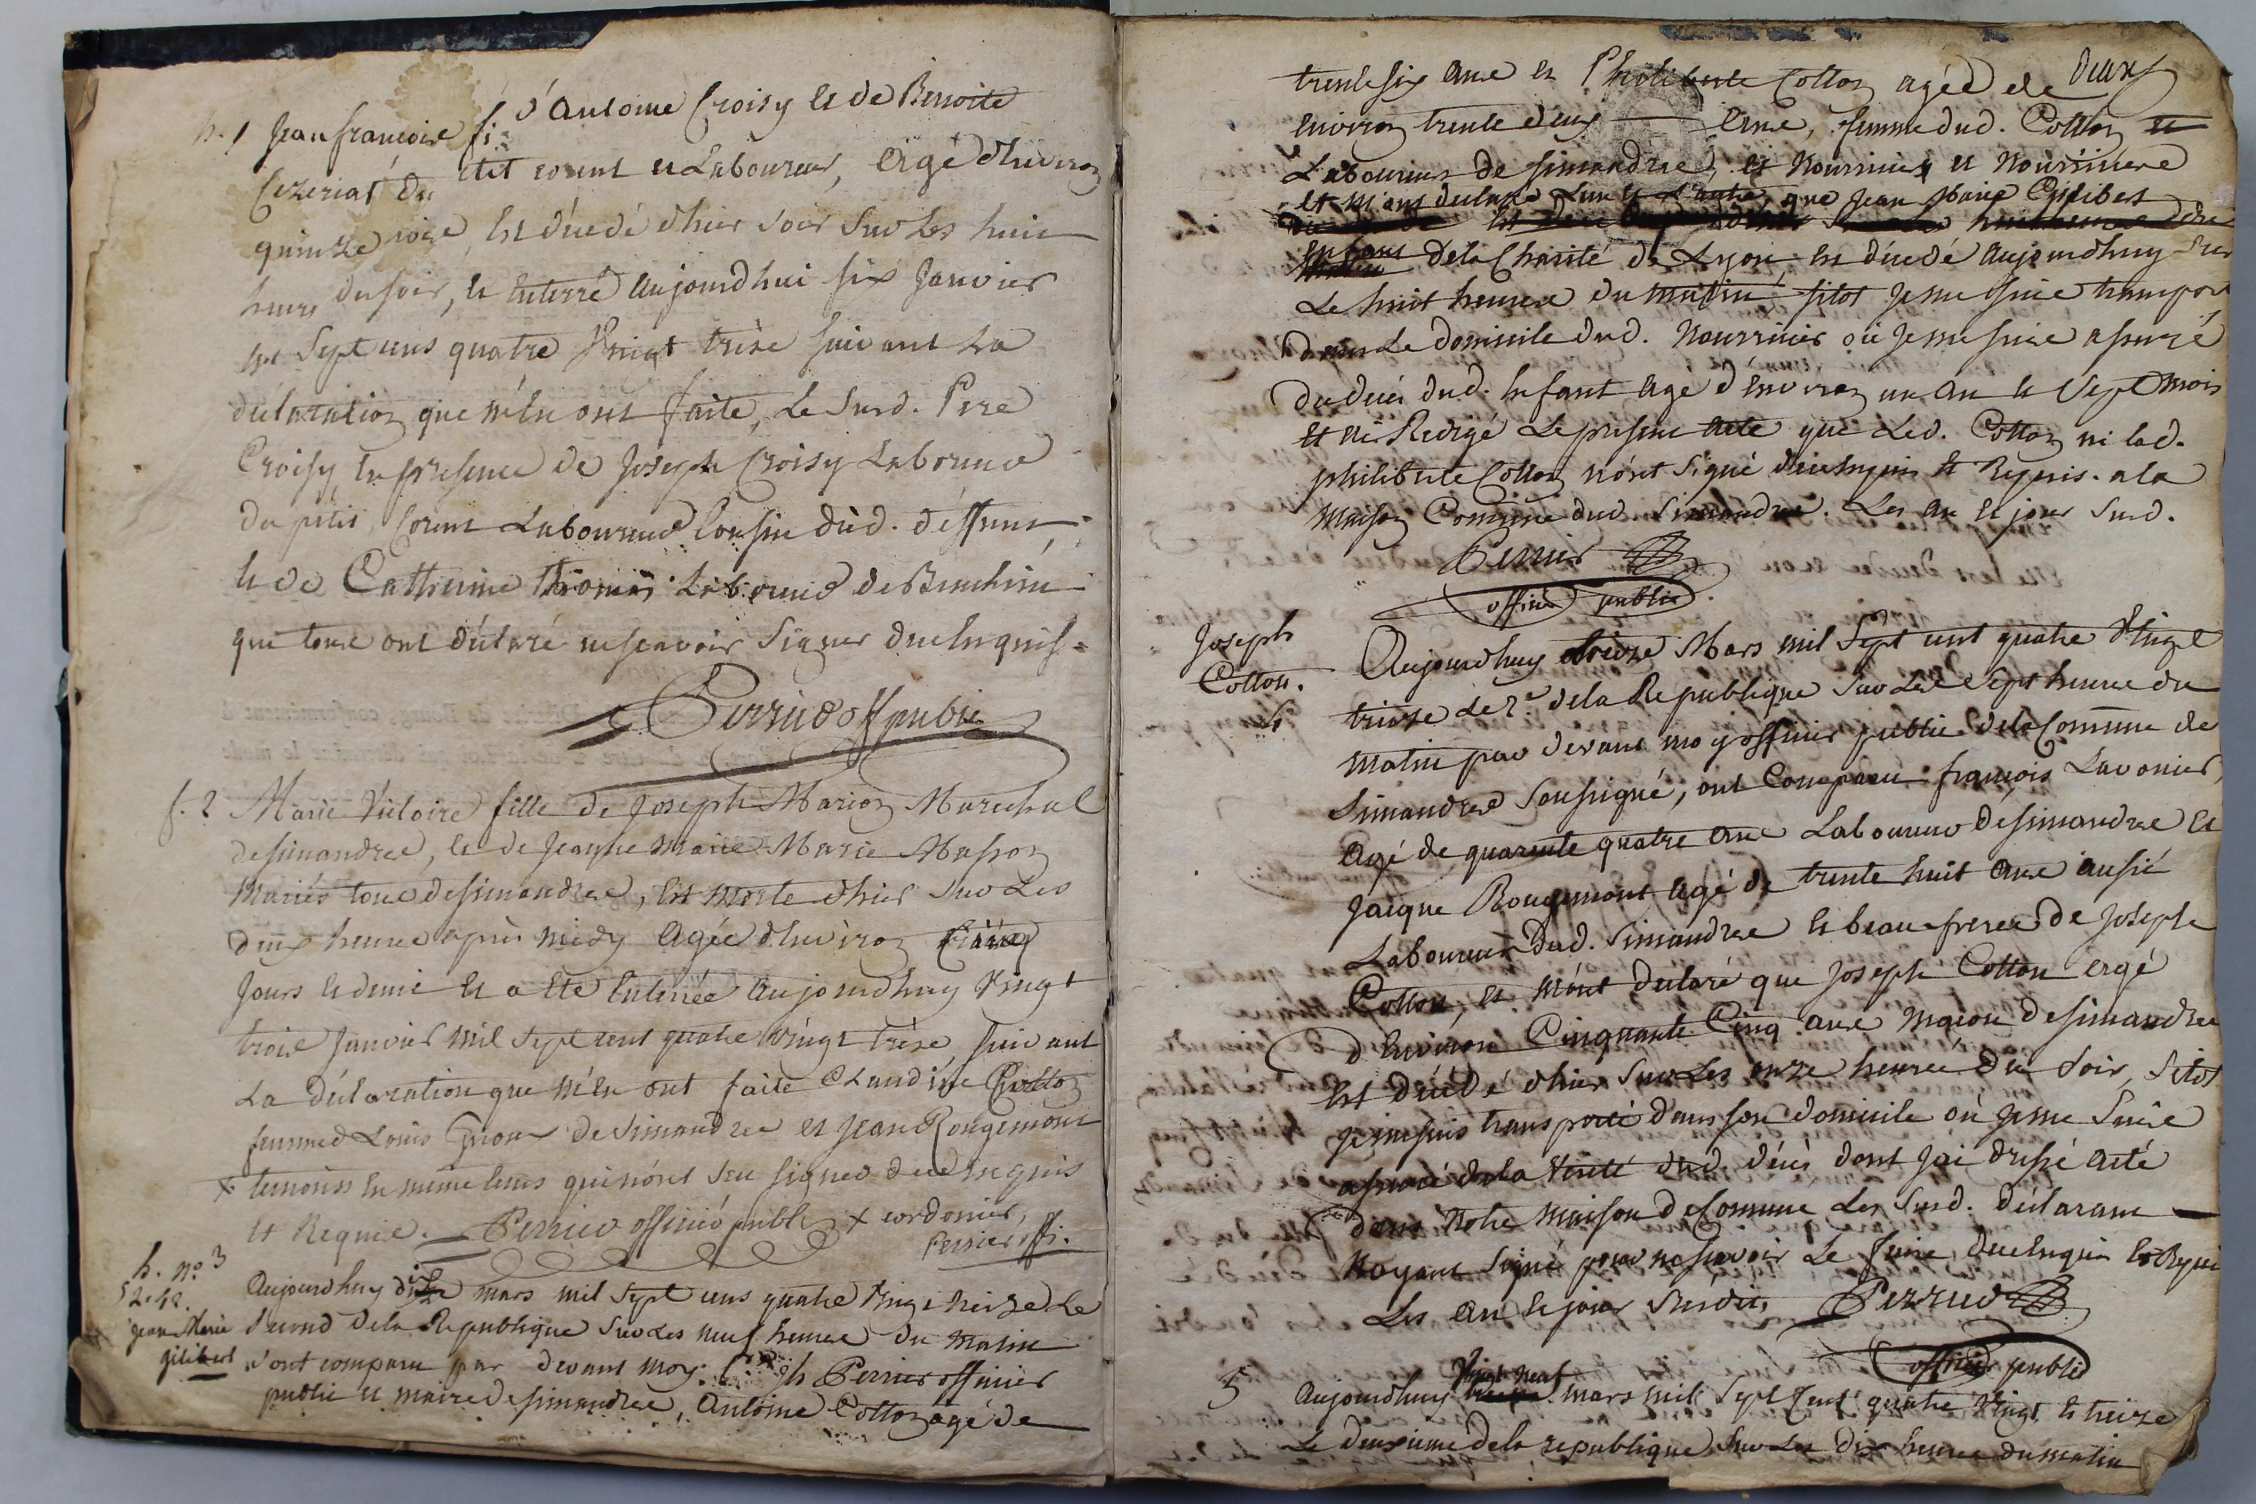 h. 1 Jean françois fi. d'Antoine Croisy et de Benoite
Cezeriat du petit corent et Laboureur, agé d'huviron
quinze mois, est décedé d'hier soir sur les huit
heures du soir, et enterré aujourd'hui six Janvier
mil sept cens quatre Vingt trèse suivant La
déclaration que m'en ont faite, Le susd. Pere
Croisy, en presence de Joseph Croisy Laboureur
du petit Corent Laboureur Cousin dud. déffunt,
et de Catherine Laboureur de
qui tous ont déclaré ne scavoir signer de ce enquis.
Perrier off public
f. 2 Marie Victoire fille de Joseph Marion Marechal
de simandre, et de Jeanne Marie Marie Masson
Mariés tous de simandre, est morte d'hier sur Les
deux heures après midy agée d'huviron
Jours et demi et a été enterrée aujourdhuy Vingt
trois Janvier mil sept cent quatre vingt trèse, suivant
La déclaration que m'en ont faite Claudine Cotton
femme d Louis de Simandre et Jean Rougemont
x temoins en même tems qui n'ont sçu signer de ce enquis
et Requis. Perrier officié public x cordonier,
Perrier offi.
h. no. 3
Jean Marie
gilibert
Aujourdhuy dix mars mil sept cens quatre vingt treize Le
second de la Republique sur les neuf heures du matin
sont comparu par devant moy Perrier officier
public et maire de simandre, Antoine Cotton agé de
trente six ans et Philiberte Cotton agéé de deux
environ trente deux ans, femme dud. Cotton et
Laboureurs de simandre, et Nourricier et Nourriciere
et m'ont declaré L'un et L'autre, que Jean Marie Gilibert
enfant de la Charité de Lyon est décedé aujourdhuy sur
Le huit heures du matin, sitot je me suis transporté
dans Le domicile dud. Nourricier où je me suis assuré
du décès dud. enfant agé d'environ un an et sept mois
et ai Redigé Le present acte que Led. Cotton ni lad.
philiberte Cotton n'ont signé de ce enquis et Requis. a la
maison Commune dud. Simandre. Les an et jour susd.
Perrier
officier public
Joseph
Cotton.
4
Aujourdhuy treize Mars mil sept cent quatre Vingt
treize Le 2e de la Republique sur Les sept heures du
matin par devant moy officier public de la Commune de
Simandre soussigné, ont Comparu françois Lavonier,
agé de quarente quatre ans Laboureur de simandre et
Jacque Rougemont agé de trente huit ans aussi
Laboureur dud. simandre et beau frere de Joseph
Cotton, et m'ont declaré que Joseph Cotton agé
d'environ Cinquante Cinq ans maçon de simandre
est décédé d'hier sur Les onze heures du soir, sitot
je me suis transporté dans son domicile où je me suis
assuré de la verité dud. décès dont j'ai dressé acte
dans Notre maison de Commune Les susd. déclarans
n'ayant signé pour ne scavoir Le faire, de ce enquis et Requis
Les an et jour susdit, Perrier
officier public
5 Aujourdhuy Vingt neuf mars mil sept Cent quatre vingt et treize
Le deuxieme de la republique sur Les dix heures du matin